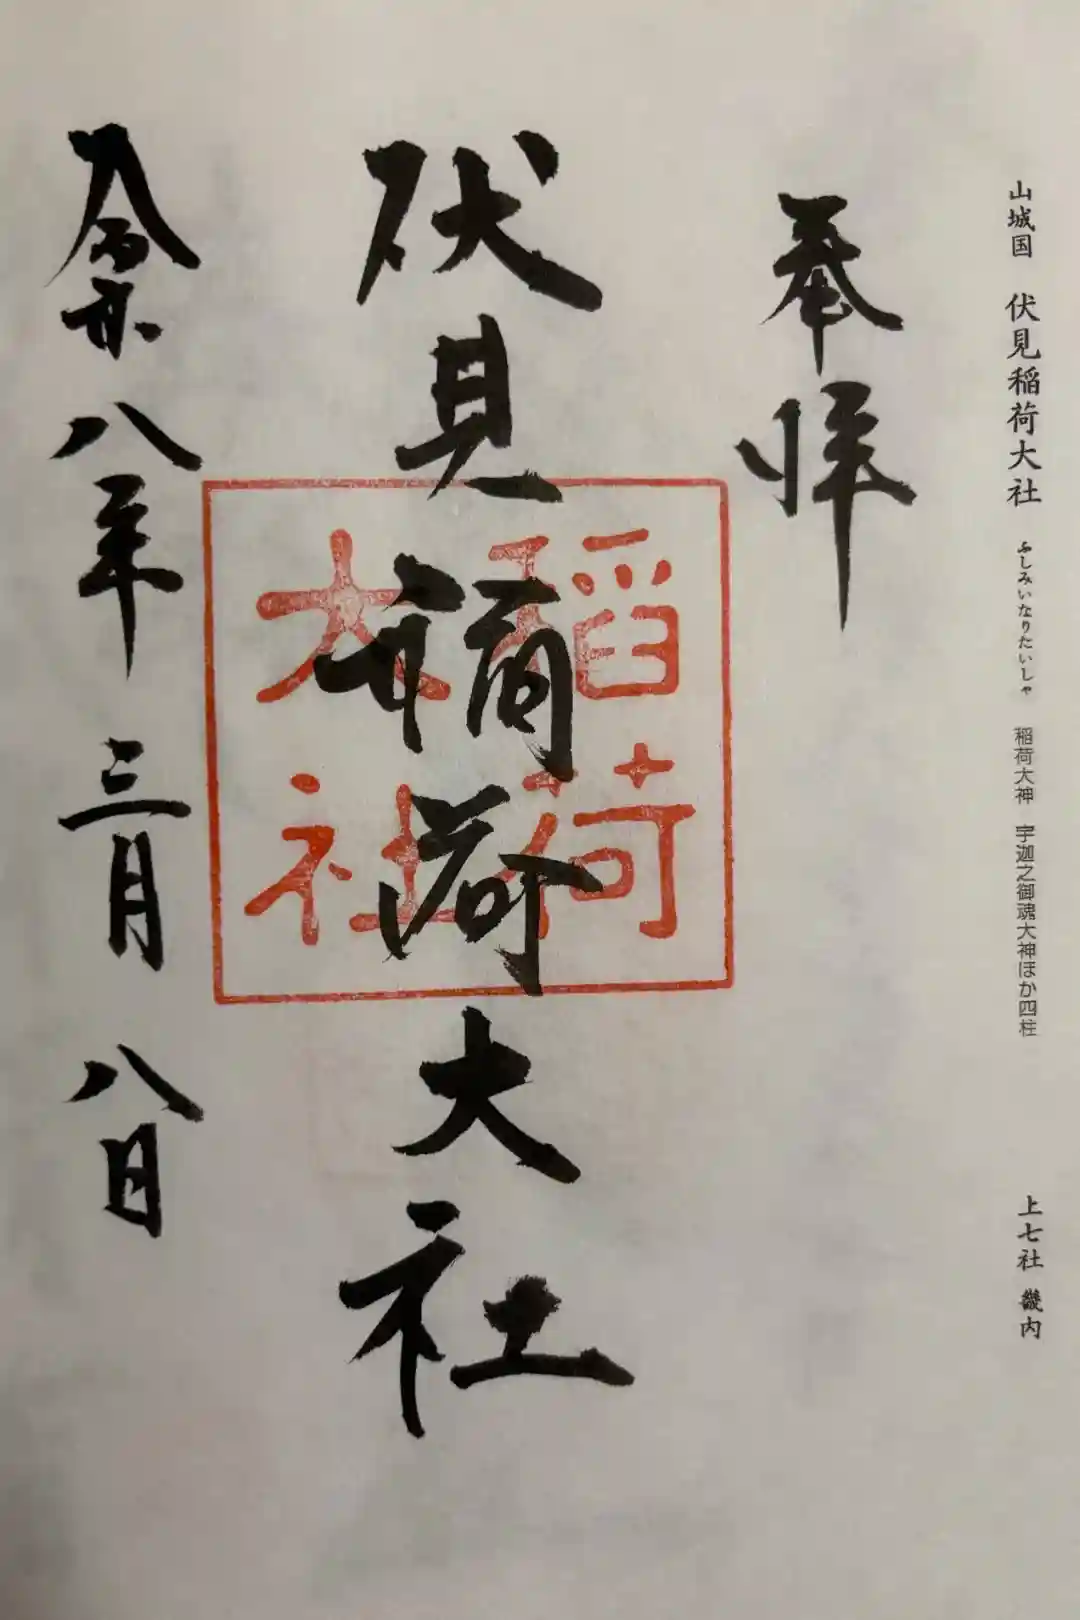 山城国 伏見稲荷大社 ふしみいなりたいしゃ 稲荷大神 宇迦之御魂大神ほか四柱 上七社 畿内
奉拝
伏見稲荷大社
稲荷
大社
令和八年 三月 八日